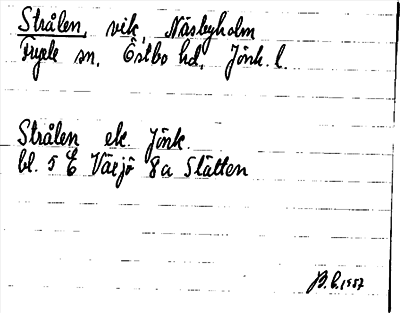 Strålen, vik, Näsbyholm
Fryele sn, Östbo hd, Jönk. l.
Strålen ek. Jönk.
bl. 5 E Växjö 8a Slätten
B.C. 1957